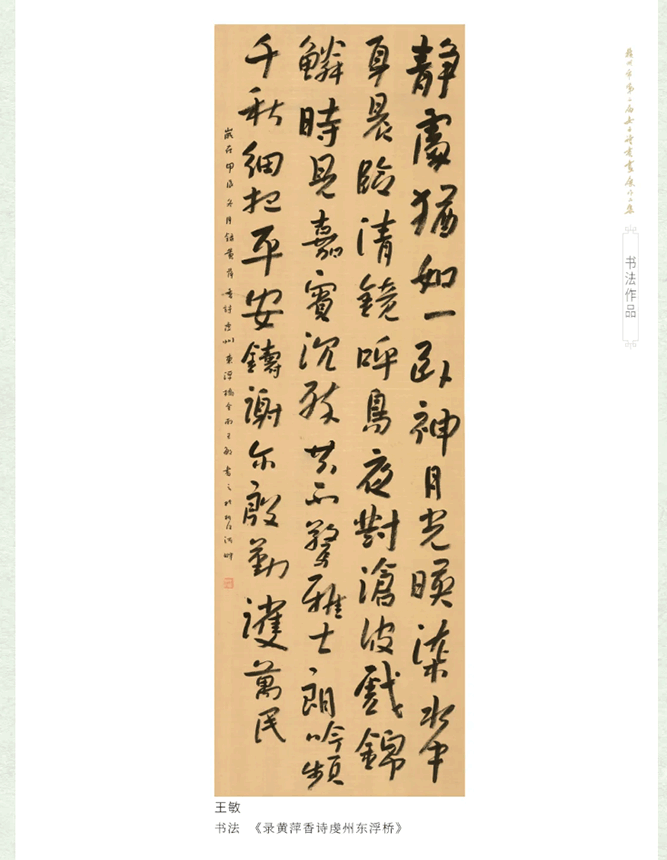 靜處猶如一卧神月光暎染水中
真晨臨清鏡呼鳥夜對滄波戲錦
鱗時見嘉賓沉不驚雅士朗吟頻
千秋細把平安鑄謝尔殷勤護萬民
歲在甲辰冬月錄黃萍香詩虔州東浮橋王敏書之於河畔
书法作品
王敏
书法 《录黄萍香诗虔州东浮桥》